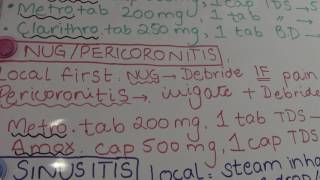 Metro tab 200mg, 1 tab "
Clarithro tab 250mg, 1 tab BD
NUG/PERICORONITIS
Local first. NUG → Debride IF pain
Pericoronitis → irrigate + Debride
Metro. tab 200mg, 1 tab TDS
Amox. cap 500mg, 1 cap TDS
SINUSITIS Local: steam inha